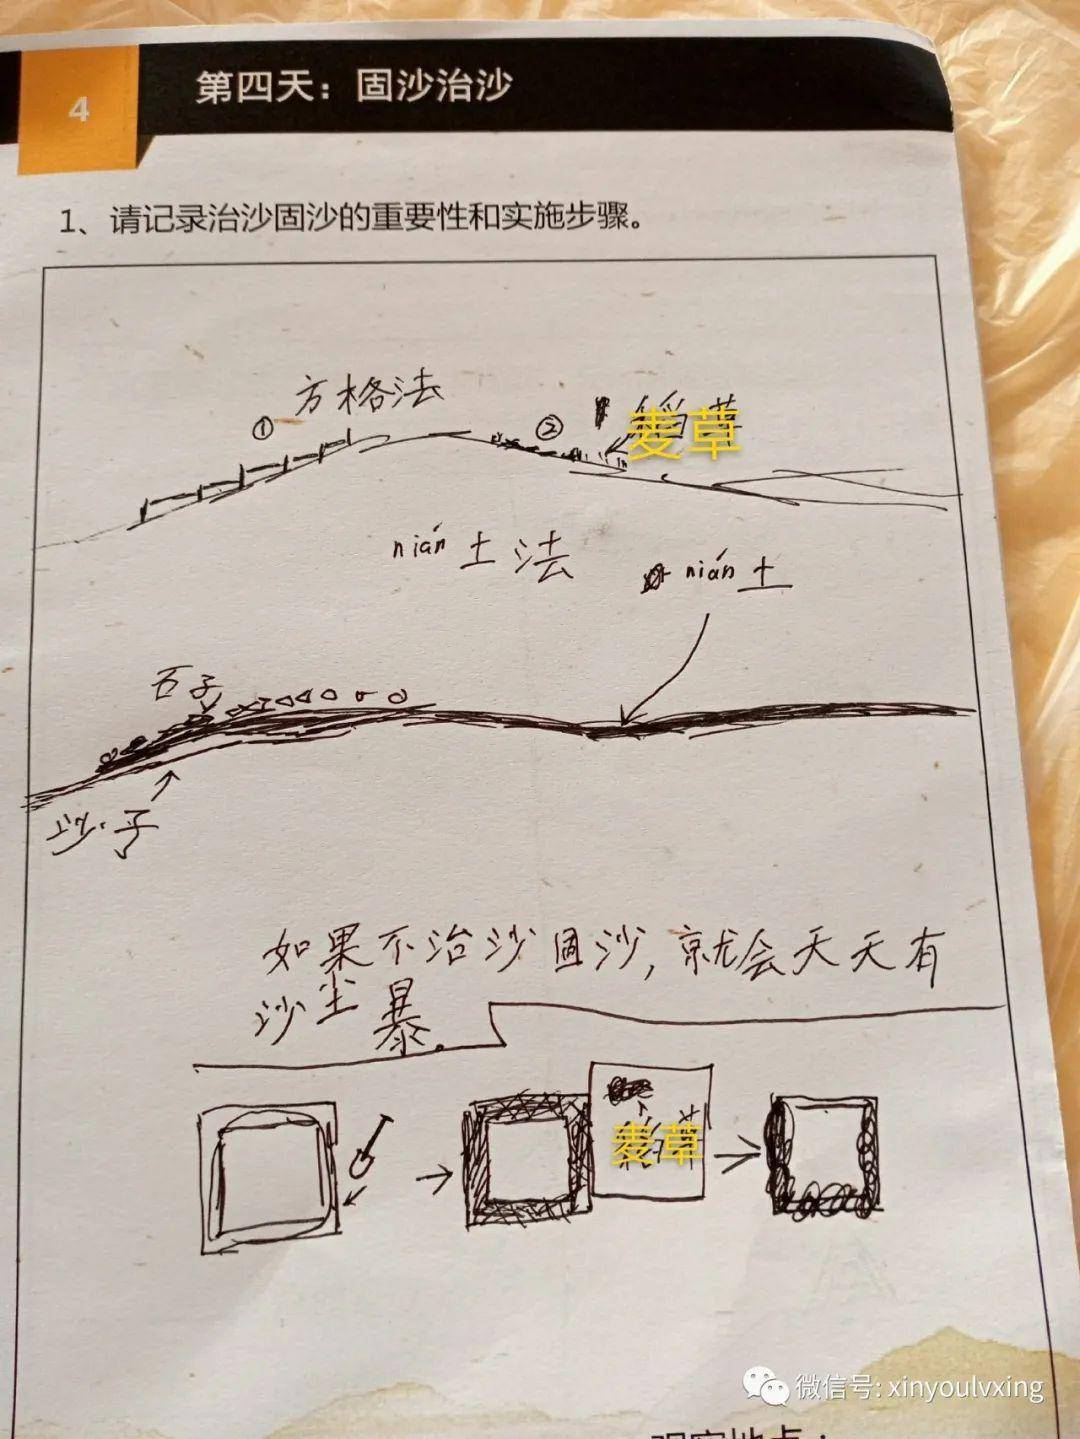 4
第四天：固沙治沙
1、请记录治沙固沙的重要性和实施步骤。
方格法
① ② 麦草
nián土法
nián土
石子
沙子
如果不治沙固沙，就会天天有
沙尘暴。
麦草
微信号: xinyoulvxing